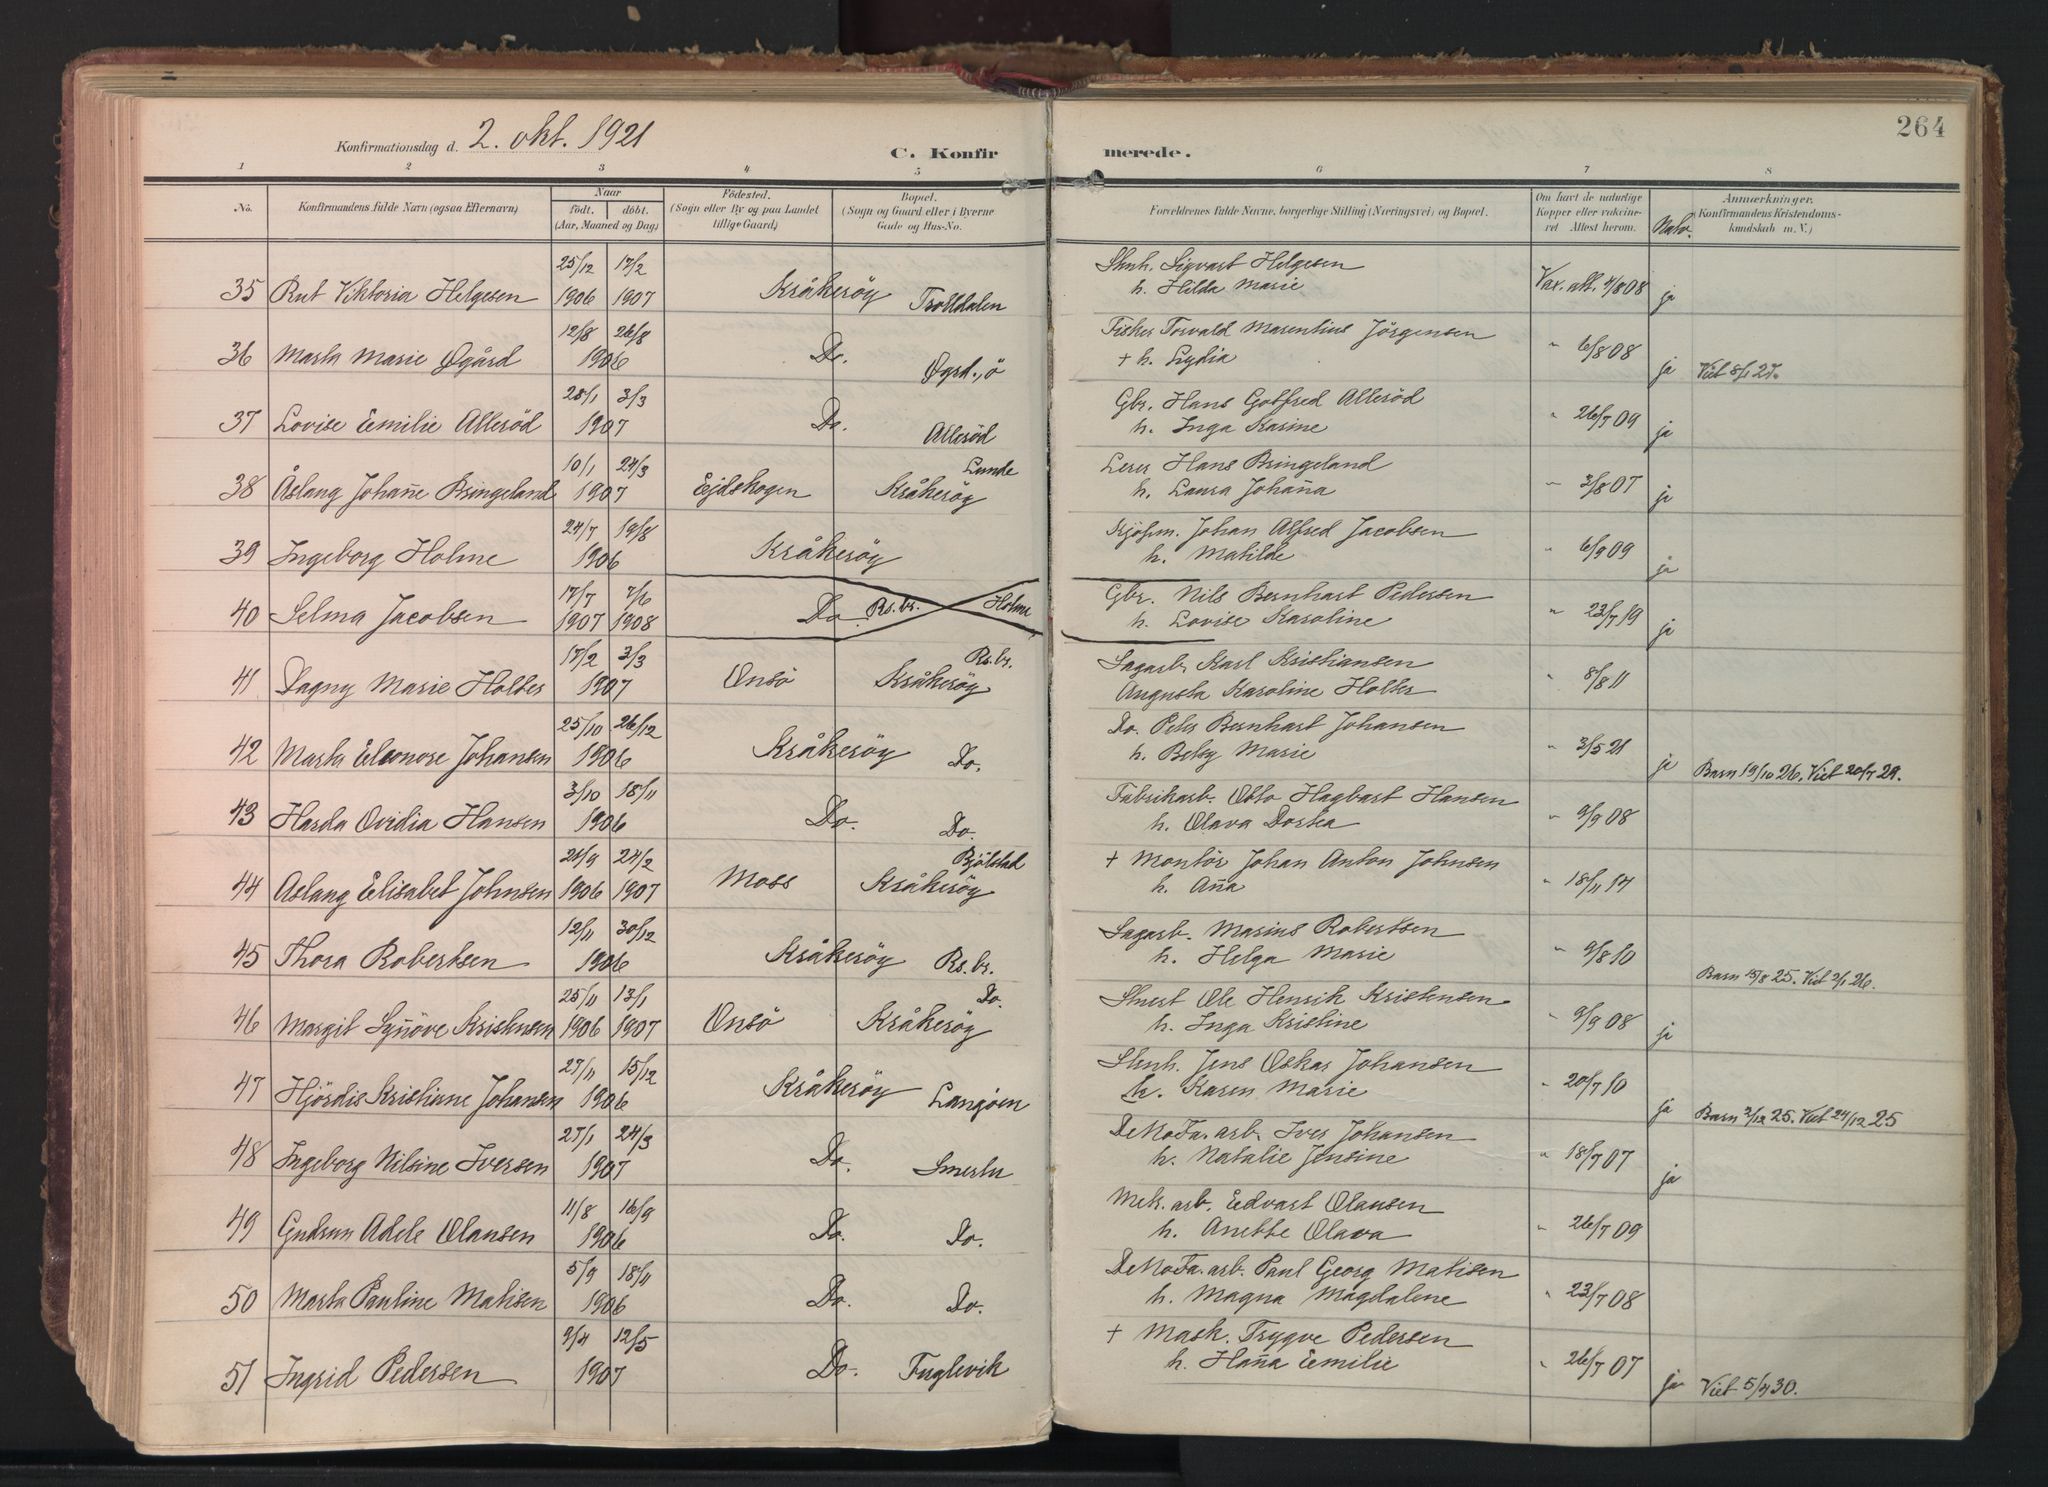 264
Konfirmationsdag d. 2. okt. 1921
C. Konfirmerede.
1 2 3 4 5 6 7 8
No. Konfirmandens fulde Navn (ogsaa Efternavn) Naar födt. döbt. (Aar, Maaned og Dag) Födested. (Sogn eller By og paa Landet tillige Gaard) Bopæl. (Sogn og Gaard eller i Byerne Gade og Hus-No. Forældrenes fulde Navne, borgerlige Stilling (Næringsvei) og Bopæl. Om havt de naturlige Kopper eller vakcineret Attest herom. Natv. Anmærkninger. Konfirmandens Kristendomskundskab m. V.)
25/12 17/2 Sknh. Sigvart Helgesen
35 Rut Viktoria Helgesen 1906 1907 Kråkeröy Trolldalen h. Hilda Marie Vax. att. 7/8 08 ja
12/8 26/8 Fisker Torvald Marentius Jörgensen
36 Marta Marie Øgård 1906 Do. Øgrd., ö + h. Lydia " 6/8 08 ja Viet 8/1 27.
28/1 3/3 Gbr. Hans Gotfred Alleröd
37 Lovise Emilie Alleröd 1907 Do. Alleröd h. Inga Karine " 26/7 09 ja
10/1 24/3 Lunde Lerer Hans Bringeland
38 Åslaug Johañe Bringeland 1907 Ejdskogen Kråkeröy h. Laura Johaña " 3/8 07 ja
24/7 19/8 Kjöpm. Johan Alfred Jacobsen
39 Ingeborg Holme 1906 Kråkeröy h. Matilde " 6/9 09 ja
17/7 7/6 Rs. br. Holme Gbr. Nils Bernhart Pedersen
40 Selma Jacobsen 1907 1908 Do. h. Lovise Karoline " 23/7 19 ja
17/2 3/3 Rs. br. Sagarb. Karl Kristiansen
41 Dagny Marie Holter 1907 Onsö Kråkeröy Augusta Karoline Holter " 8/8 11
25/10 26/12 Do. Peter Bernhart Johansen
42 Marta Eleonore Johansen 1906 Kråkeröy Do. h. Betsy Marie " 3/5 21 ja Barn 19/10 26. Viet 20/7 29.
3/10 18/11 Fabrikarb. Otto Hagbart Hansen
43 Harda Ovidia Hansen 1906 Do. Do. h. Olava Dortea " 9/9 08
26/9 24/2 Bjölstad + Montör Johan Anton Johnsen
44 Aslaug Elisabet Johnsen 1906 1907 Moss Kråkeröy h. Aña " 18/11 14
12/11 30/12 Sagarb. Marius Robertsen
45 Thora Robertsen 1906 Kråkeröy Rs. br. h. Helga Marie " 9/8 10 Barn 15/8 25. Viet 2/1 26.
25/11 13/1 Do. Ole Henrik Kristensen
46 Margit Syñöve Kristensen 1906 1907 Onsö Kråkeröy h. Inga Kristine " 9/9 08 ja
27/11 15/12 Sknh. Jens Oskar Johansen
47 Hjördis Kristiane Johansen 1906 Kråkeröy Langöen h. Karen Marie " 20/7 10 ja Barn 2/12 25. Viet 24/12 25
27/1 24/3 DeNoFa. arb. Iver Johansen
48 Ingeborg Nilsine Iversen 1907 Do. Smertu h. Natalie Jensine " 18/7 07 ja
11/8 16/9 Mek. arb. Edvart Olausen
49 Gudrun Adele Olausen 1906 Do. Do. h. Anette Olava " 26/7 09
5/9 18/11 DeNoFa. arb. Paul Georg Matisen
50 Marta Pauline Matisen 1906 Do. Do. h. Magna Magdalene " 23/7 08
9/4 12/5 + Mask. Trygve Pedersen
51 Ingrid Pedersen 1907 Do. Fuglevik h. Haña Emilie " 26/7 07 ja Viet 5/4 30.